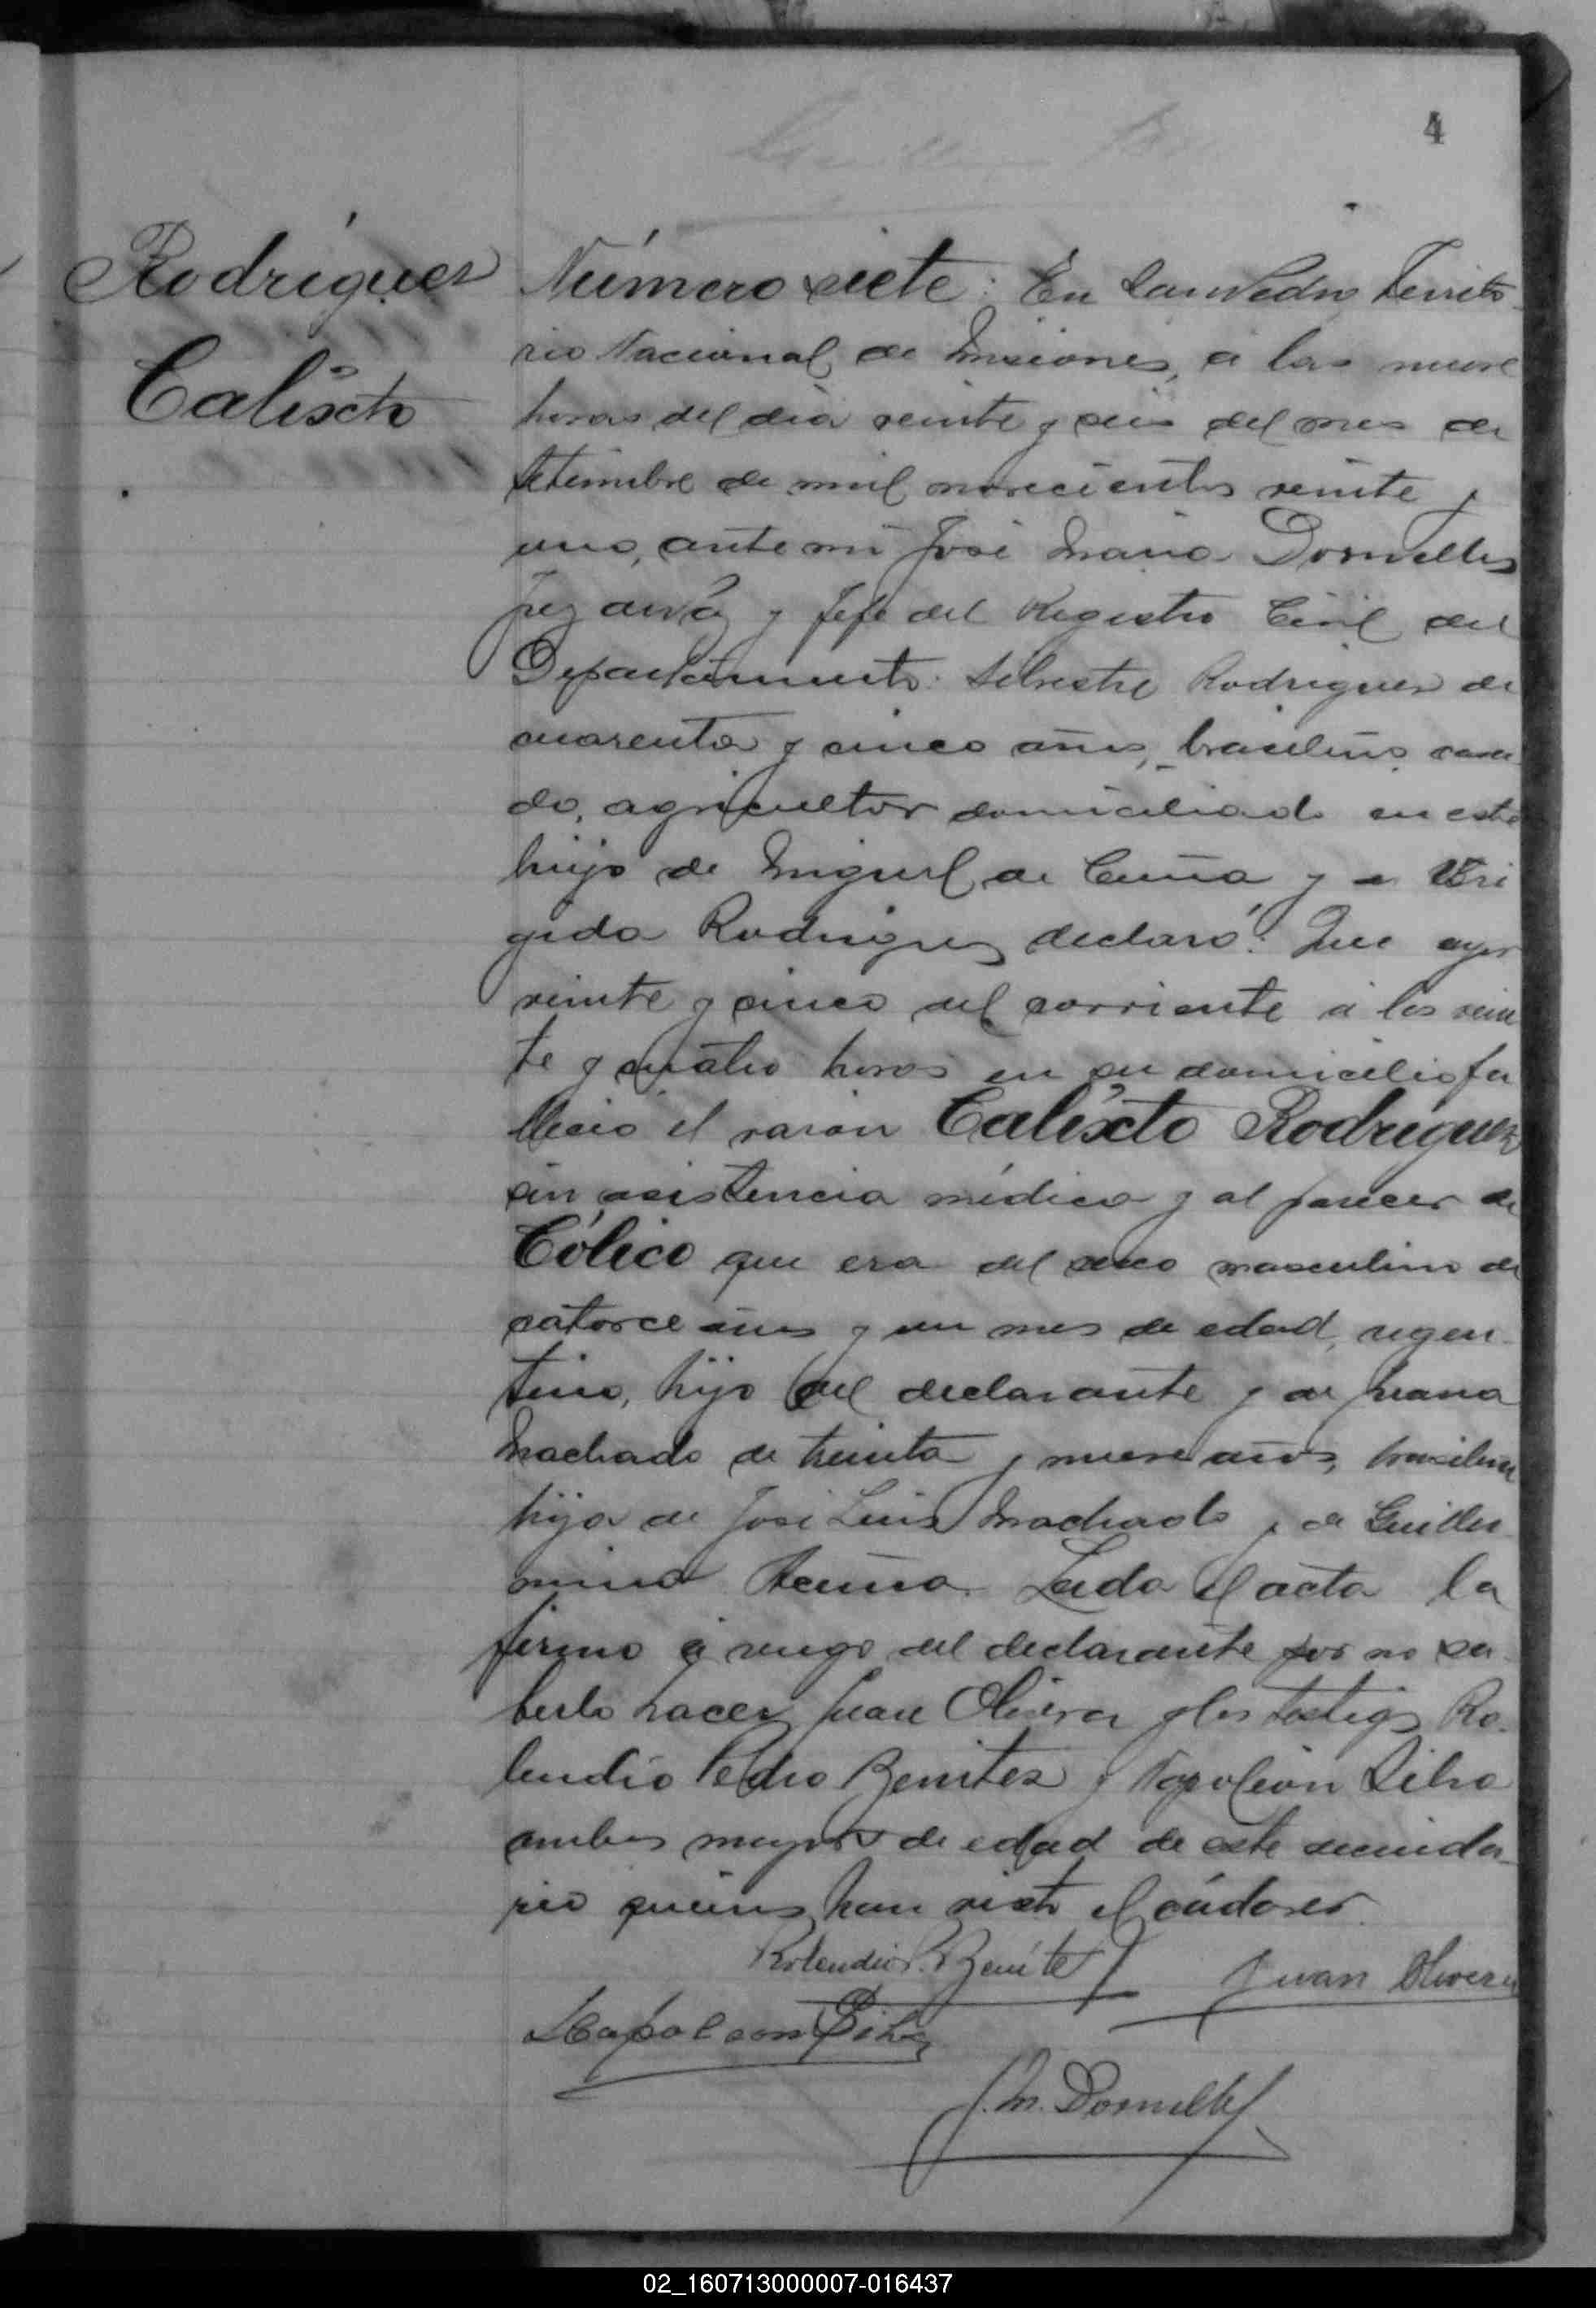 4
Rodríguez
Calíxcto
Número siete: En San Pedro, Territo-
rio Nacional de Misiones, á las nueve
horas del día veinte y seis del mes de
Setiembre de mil novecientos veinte y
uno, ante mi José Maria Dornelles
Juez de Paz y Jefe del Registro Civil del
Departamento: Silvestre Rodriguez de
cuarenta y cinco años, brasileño casa
do, agricultor domiciliado en esta
hijo de Miguel de Cuña y de Bri
gida Rodriguez declaró: Que ayer
veinte y cinco del corriente á las vein
te y cuatro horas en su domicilio fa
lleció el varón Calíxcto Rodríguez
sin asistencia médica y al parecer de
Cólico que era del sexo masculino de
catorce años y un mes de edad, argen-
tino, hijo del declarante y de Juana
Machado de treinta y nueve años, brasilera
hija de José Luis Machado y de Guiller-
mina Acuña. Leida el acta la
firmó á ruego del declarante por no sa-
berlo hacer Juan Olivera y los testigos Ro-
lendio Pedro Benitez y Napoleón Silva
ambos mayores de edad de este vecinda-
rio quienes han visto el cádaver.
Rolendio P. Benítez Juan Olivera
Napoleon Silva
J. M. Dornelles
02_160713000007-016437